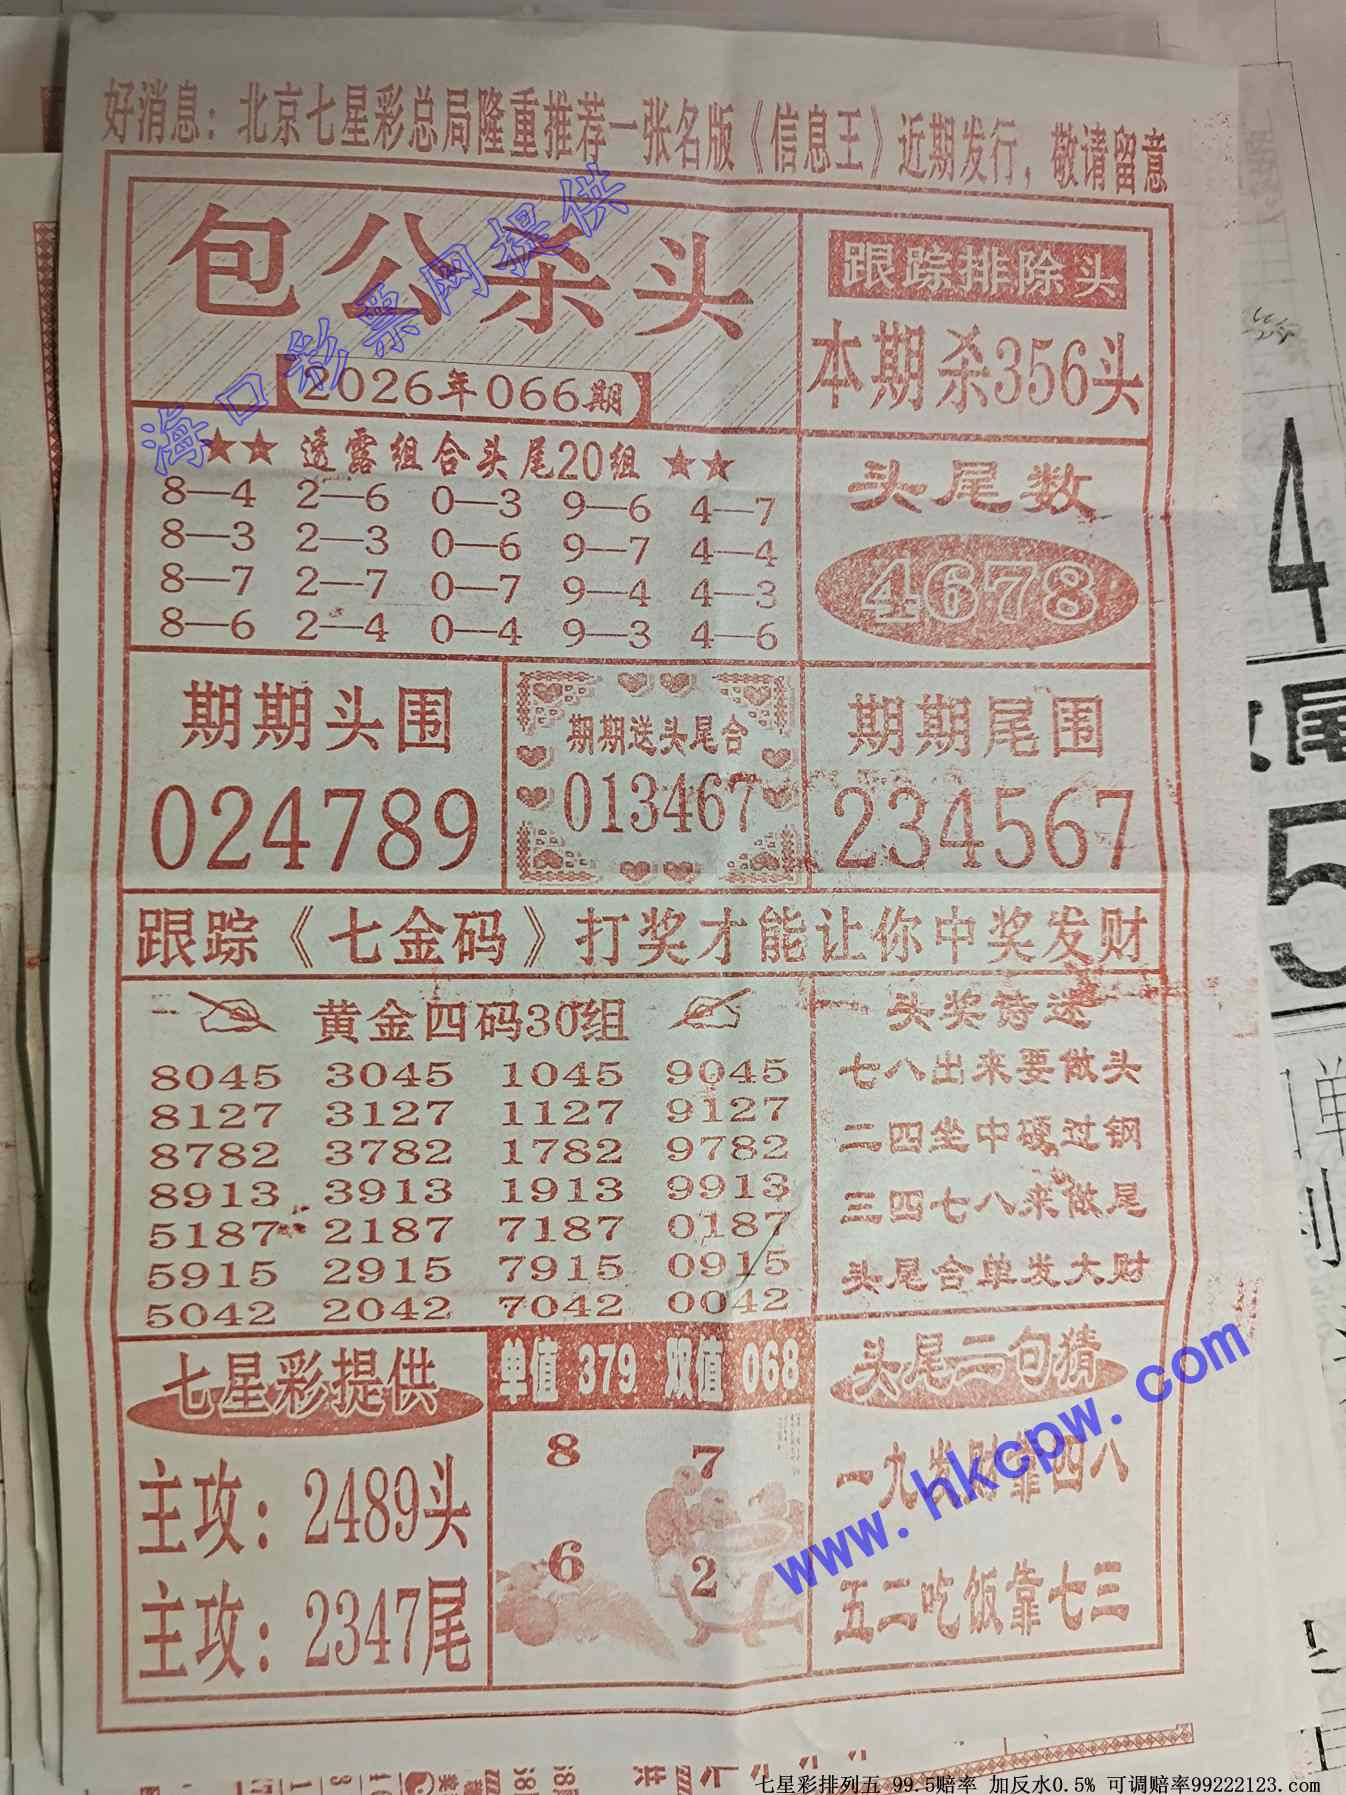 好消息：北京七星彩总局隆重推荐一张名版《信息王》近期发行，敬请留意
包公杀头
2026年066期
跟踪排除头
本期杀356头
★★ 透露组合头尾20组 ★★
8—4 2—6 0—3 9—6 4—7
8—3 2—3 0—6 9—7 4—4
8—7 2—7 0—7 9—4 4—3
8—6 2—4 0—4 9—3 4—6
头尾数
4678
期期头围
024789
期期送头尾合
013467
期期尾围
234567
跟踪《七金码》打奖才能让你中奖发财
黄金四码30组
8045 3045 1045 9045
8127 3127 1127 9127
8782 3782 1782 9782
8913 3913 1913 9913
5187 2187 7187 0187
5915 2915 7915 0915
5042 2042 7042 0042
头奖诗迷
七八出来要做头
二四坐中硬过钢
三四七八来做尾
头尾合单发大财
七星彩提供
主攻：2489头
主攻：2347尾
单值 379 双值 068
8 7
6 2
头尾二句猜
一九发财靠四八
五二吃饭靠七三
海口彩票网提供
www.hkcpw.com
4
尾
5
七星彩排列五 99.5赔率 加反水0.5% 可调赔率99222123.com